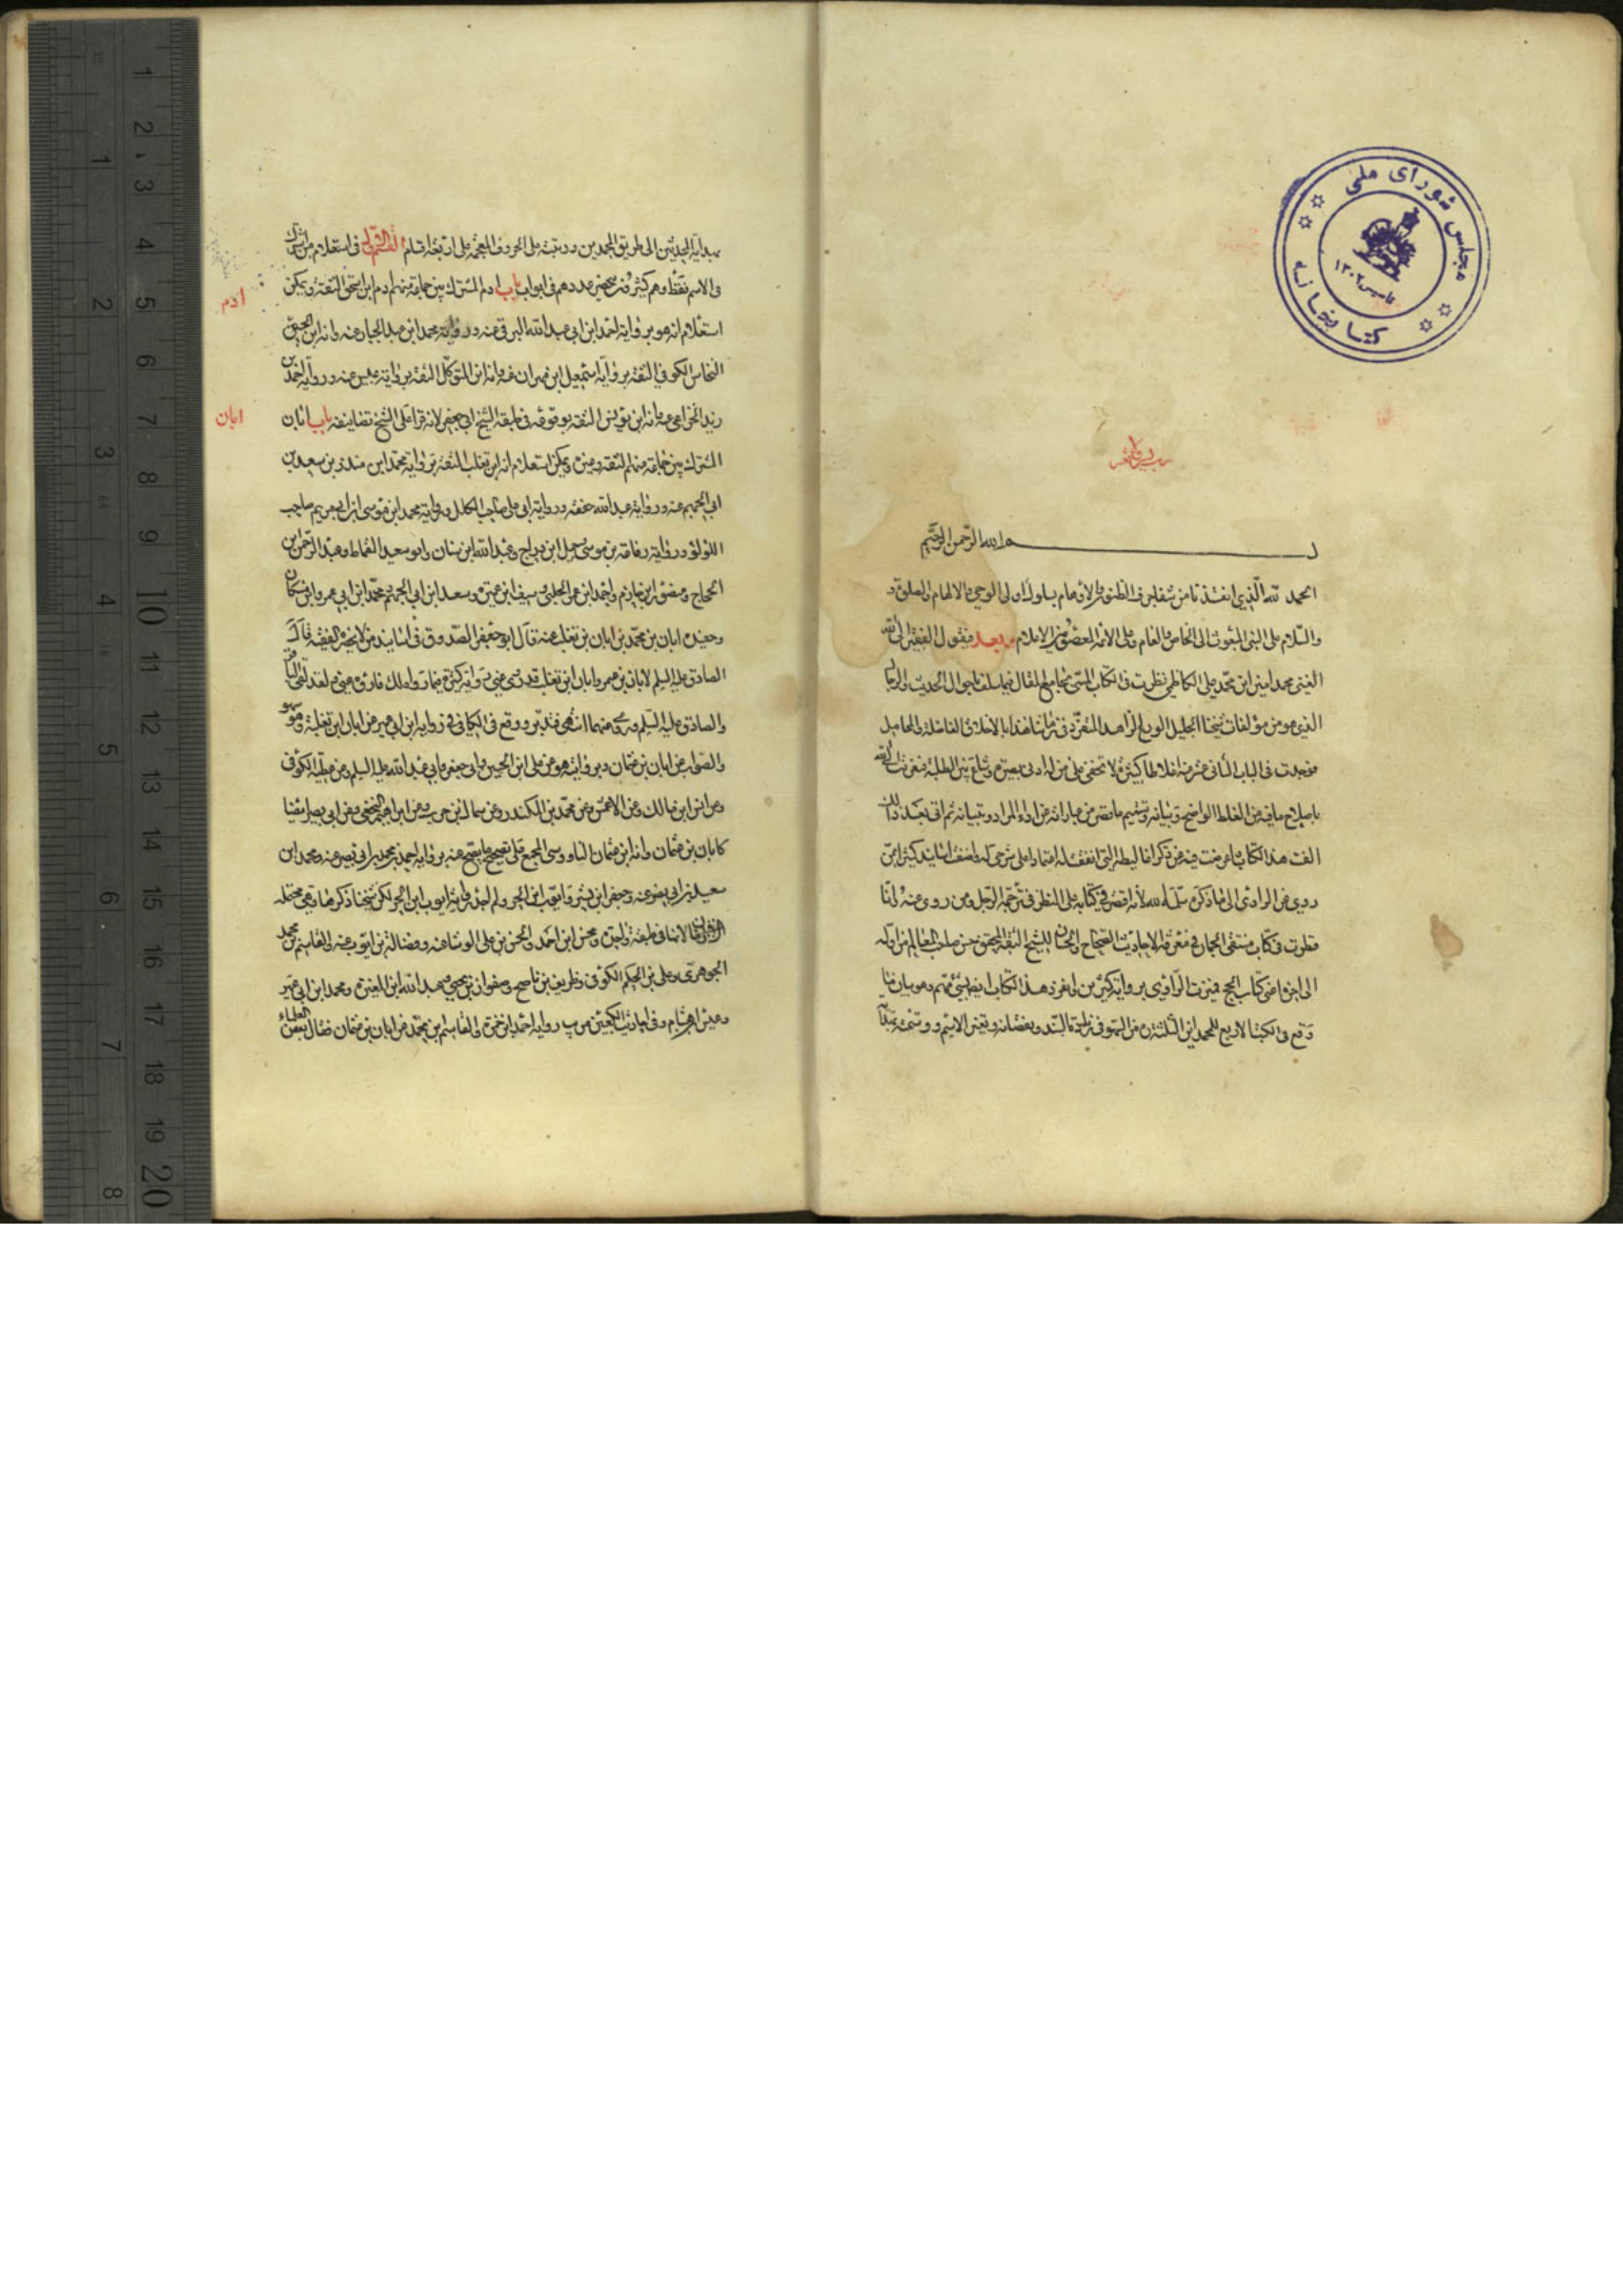 مجلس شورای ملی
کتابخانه
تاسیس ۱۳۰۲
الله الرحمن الرحیم
الحمد لله الذی انقذنا من شفا جرف الظنون والاوهام بسلوك اولی الوحی والالهام والصلوة و
والسلام علی النبی المبعوث الی الخاص والعام وعلی الائمة المعصومین الاعلام وبعد فیقول الفقیر الی الله
الغنی محمد امین ابن محمد علی الکاظمی نظرت فی الکتاب المسمی بجامع المقال فیما یتعلق باحوال الحدیث والرجال
الذی هو من مؤلفات شیخنا الجلیل الورع الزاهد المتفرد فی زماننا هذا بالاخلاق الفاضلة والمحامل
فوجدت فی الباب الثانی عشر منه اغلاطا کثیرة لا تخفی علی من له ادنی بصیرة وشاع بین الطلبة
باصلاح ما فیه من الغلط الواضح وتبیانه وتتمیم ما قصر من عباراته عن اداء المراد وتبیانه ثم انی بعد ذلك
الفت هذا الکتاب
روی عن الراوی الی ما ذکره لانه اقتصر فی کتابه علی النظر فی ترجمة الرجل ومن روی عنه
نظرت فی کتاب منتقی الجمان فی معرفة الاحادیث الصحاح والحسان للشیخ الثقة المحقق حسن صاحب المعالم من اوله
الی اخر کتاب الحج فمیزت الراوی بروایة کثیرین وانفرد هذا الکتاب ایضا بشئ مهم وهو بیان ما
وقع فی الکتب الاربع للمحمدین الثلثة من السهو فی زیادة السند ونقصانه وتغییر الاسم وسمیته
بهدایة المحدثین الی طریق المحمدین ورتبته علی الحروف المعجمة علی اربعة اقسام القسم الاول فی استعلام من اشترك
فی الاسم فقط وهم کثیرون عددهم فی ابواب باب ادم المشترك بین جماعة منهم ادم ابن اسحق الثقة ویمکن
ادم
استعلام انه هو بروایة احمد ابن ابی عبد الله البرقی عنه وروایة محمد ابن عبد الجبار عنه وانه ابن الحسین
النخاس الکوفی الثقة بروایة اسمعیل ابن مهران عنه وانه ابن المتوکل الثقة بروایة عبیس عنه وروایة احمد بن
زید الخزاعی عنه وانه ابن یونس الثقة بوقوعه فی طبقة الشیخ ابی جعفر لانه قرا علی الشیخ تصانیفه باب ابان
ابان
المشترك بین جماعة منهم الثقة وغیره ویمکن استعلام انه ابن تغلب الثقة بروایة محمد ابن منذر بن سعید بن
ابی الجهم عنه وروایة عبد الله عنه وروایة ابی علی صاحب الکلل وروایة محمد ابن موسی ابن ابی مریم صاحب
اللؤلؤ وروایة رفاعة بن موسی وجمیل ابن دراج وعبد الله ابن سنان وابو سعید القماط وعبد الرحمن ابن
الحجاج ومنصور ابن حازم واحمد ابن عمر الحلبی وسیف ابن عمیرة وسعد ابن ابی الجهم ومحمد ابن ابی عمیر وابن مسکان
وحفیده ابان بن محمد بن ابان بن تغلب عنه قال ابو جعفر الصدوق فی اسانید من لا یحضره الفقیه قال
الصادق علیه السلم لابان بن عمر وابان ابن تغلب قد روی عنی روایة کثیرة فما رواه لك فاروه عنی ولقد لقی الباقر
والصادق علیه السلم وروی عنهما انتهی فتدبر ووقع فی الکافی فی روایة ابن ابی عمیر عن ابان ابن تغلب وهو سهو
والصواب عن ابان بن عثمان وبروایته هو عن علی ابن الحسین وابی جعفر وابی عبد الله علیه السلم وعن عطیة الکوفی
وعن انس ابن مالك وعن الاعمش وعن محمد بن المنکدر وعن سماك بن حرب وعن ابراهیم النخعی وعن ابی بصیر ایضا
کابان بن عثمان وانه ابن عثمان الناووسی المجمع علی تصحیح ما یصح عنه بروایة احمد بن محمد بن ابی نصر عنه ومحمد ابن
سعید بن ابی نصر عنه وجعفر ابن بشیر وایوب ابن الحر ولم اجد روایة ایوب ابن الحر لکن شیخنا ذکرها وهی محتملة
لانهما فی طبقة واحدة ومحسن ابن احمد والحسن بن علی الوشا عنه وفضالة بن ایوب عنه والقاسم بن محمد
الجوهری وعلی بن الحکم الکوفی وظریف بن ناصح وصفوان بن یحیی وعبد الله ابن المغیرة ومحمد ابن ابی عمیر
وعبیس ابن هشام وفی احادیث الکعبة من یب روایة احمد ابن حمزة والقاسم بن محمد عن ابان بن عثمان فقال بعض العلماء